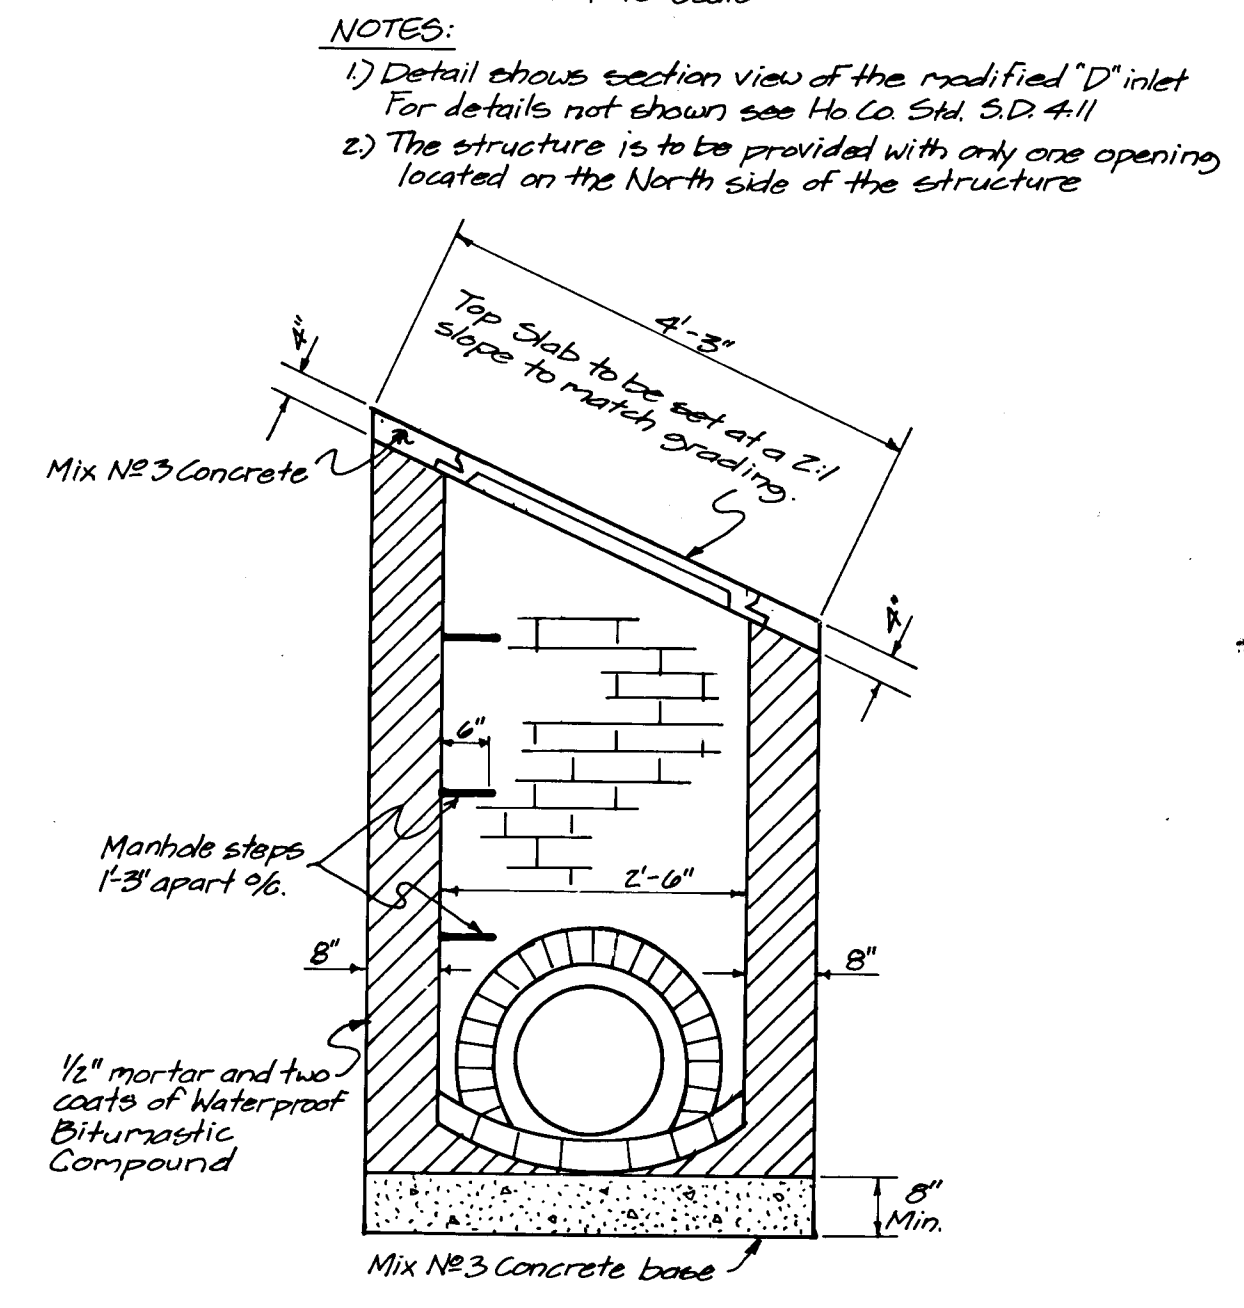 NOTES:
1.) Detail shows section view of the modified "D" inlet
For details not shown see Ho. Co. Std. S.D. 4.11
2.) The structure is to be provided with only one opening
located on the North side of the structure
4'-3"
Top Slab to be set at a 2:1
slope to match grading.
4"
Mix Nº 3 Concrete
4"
6"
Manhole steps
1'-3" apart o/c.
2'-6"
8"
8"
1/2" mortar and two
coats of Waterproof
Bitumastic
Compound
8"
Min.
Mix Nº 3 Concrete base